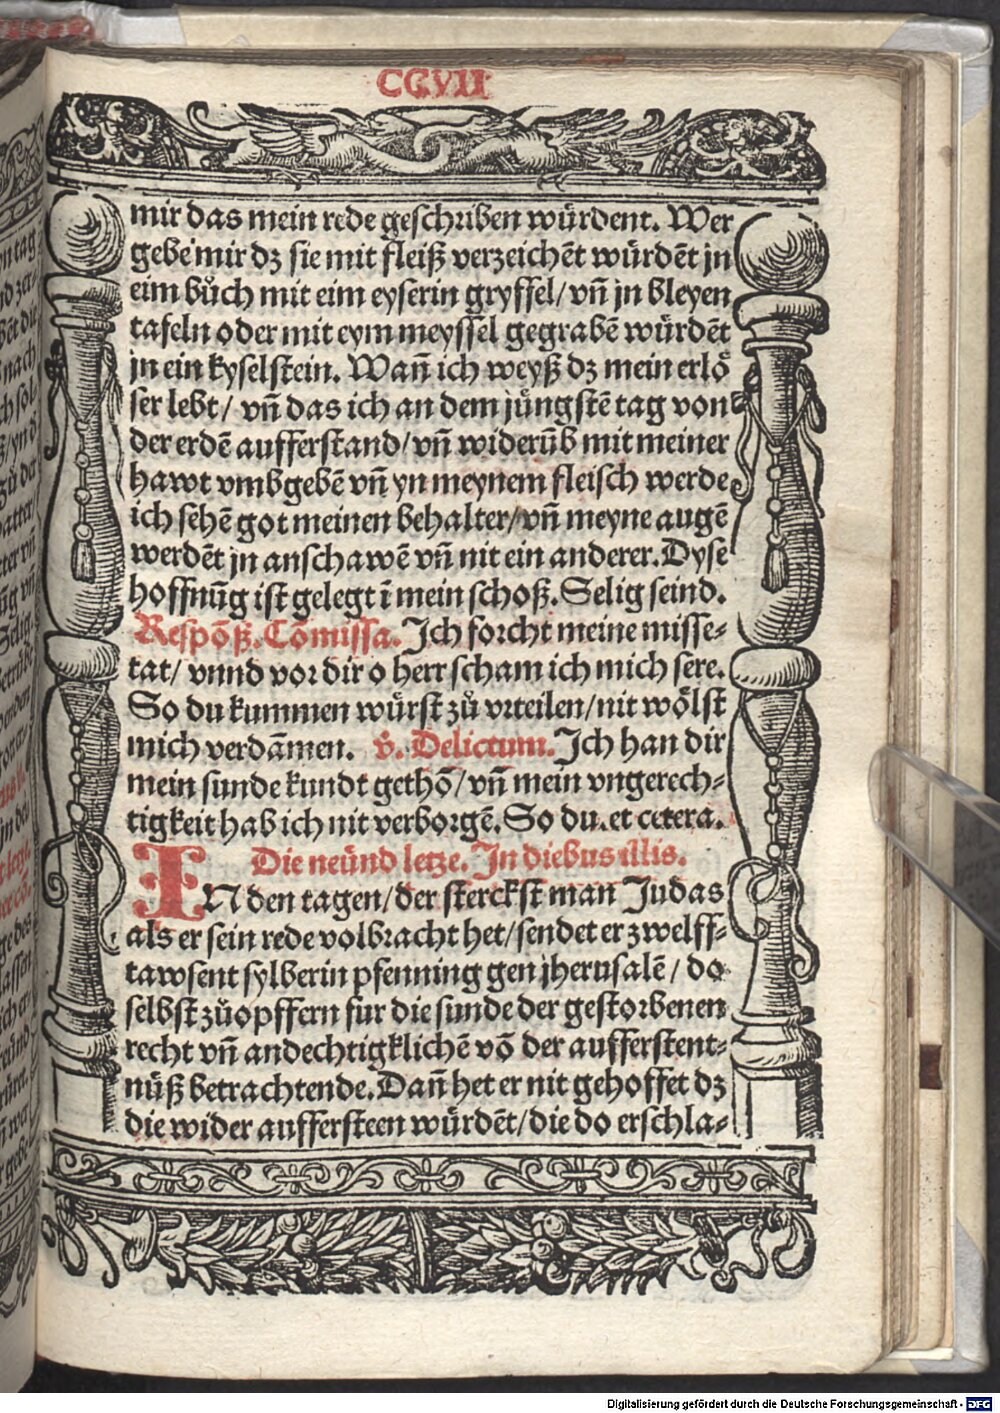 CCVII
mir das mein rede geschriben würdent. Wer
gebe mir dz sie mit fleiß verzeichēt würdēt jn
eim bůch mit eim eyserin gryffel/ vñ jn bleyen
tafeln oder mit eym meyssel gegrabē würdēt
jn ein kyselstein. Wañ ich weyß dz mein erlö
ser lebt/ vñ das ich an dem jüngstē tag von
der erdē aufferstand/ vñ widerūb mit meiner
hawt vmbgebē vñ yn meynem fleisch werde
ich sehē got meinen behalter/ vñ meyne augē
werdēt jn anschawē vñ nit ein anderer. Dyse
hoffnūg ist gelegt ī mein schoß. Selig seind.
Respōß. Cōmissa. Ich forcht meine misse⸗
tat/ vnnd vor dir o herr scham ich mich sere.
So du kummen würst zů vrteilen/ nit wölst
mich verdāmen. v̄. Delictum. Ich han dir
mein sunde kundt gethō/ vñ mein vngerech⸗
tigkeit hab ich nit verborgē. So du. et cetera.
Die neünd letze. In diebus illis.
IN den tagen/ der sterckst man Judas
als er sein rede volbracht het/ sendet er zwelff⸗
tawsent sylberin pfenning gen jherusalē/ do
selbst zůopffern fur die sunde der gestorbenen
recht vñ andechtigklichē vō der aufferstent⸗
nüß betrachtende. Dañ het er nit gehoffet dz
die wider auffersteen würdēt/ die do erschla⸗
Digitalisierung gefördert durch die Deutsche Forschungsgemeinschaft - DFG